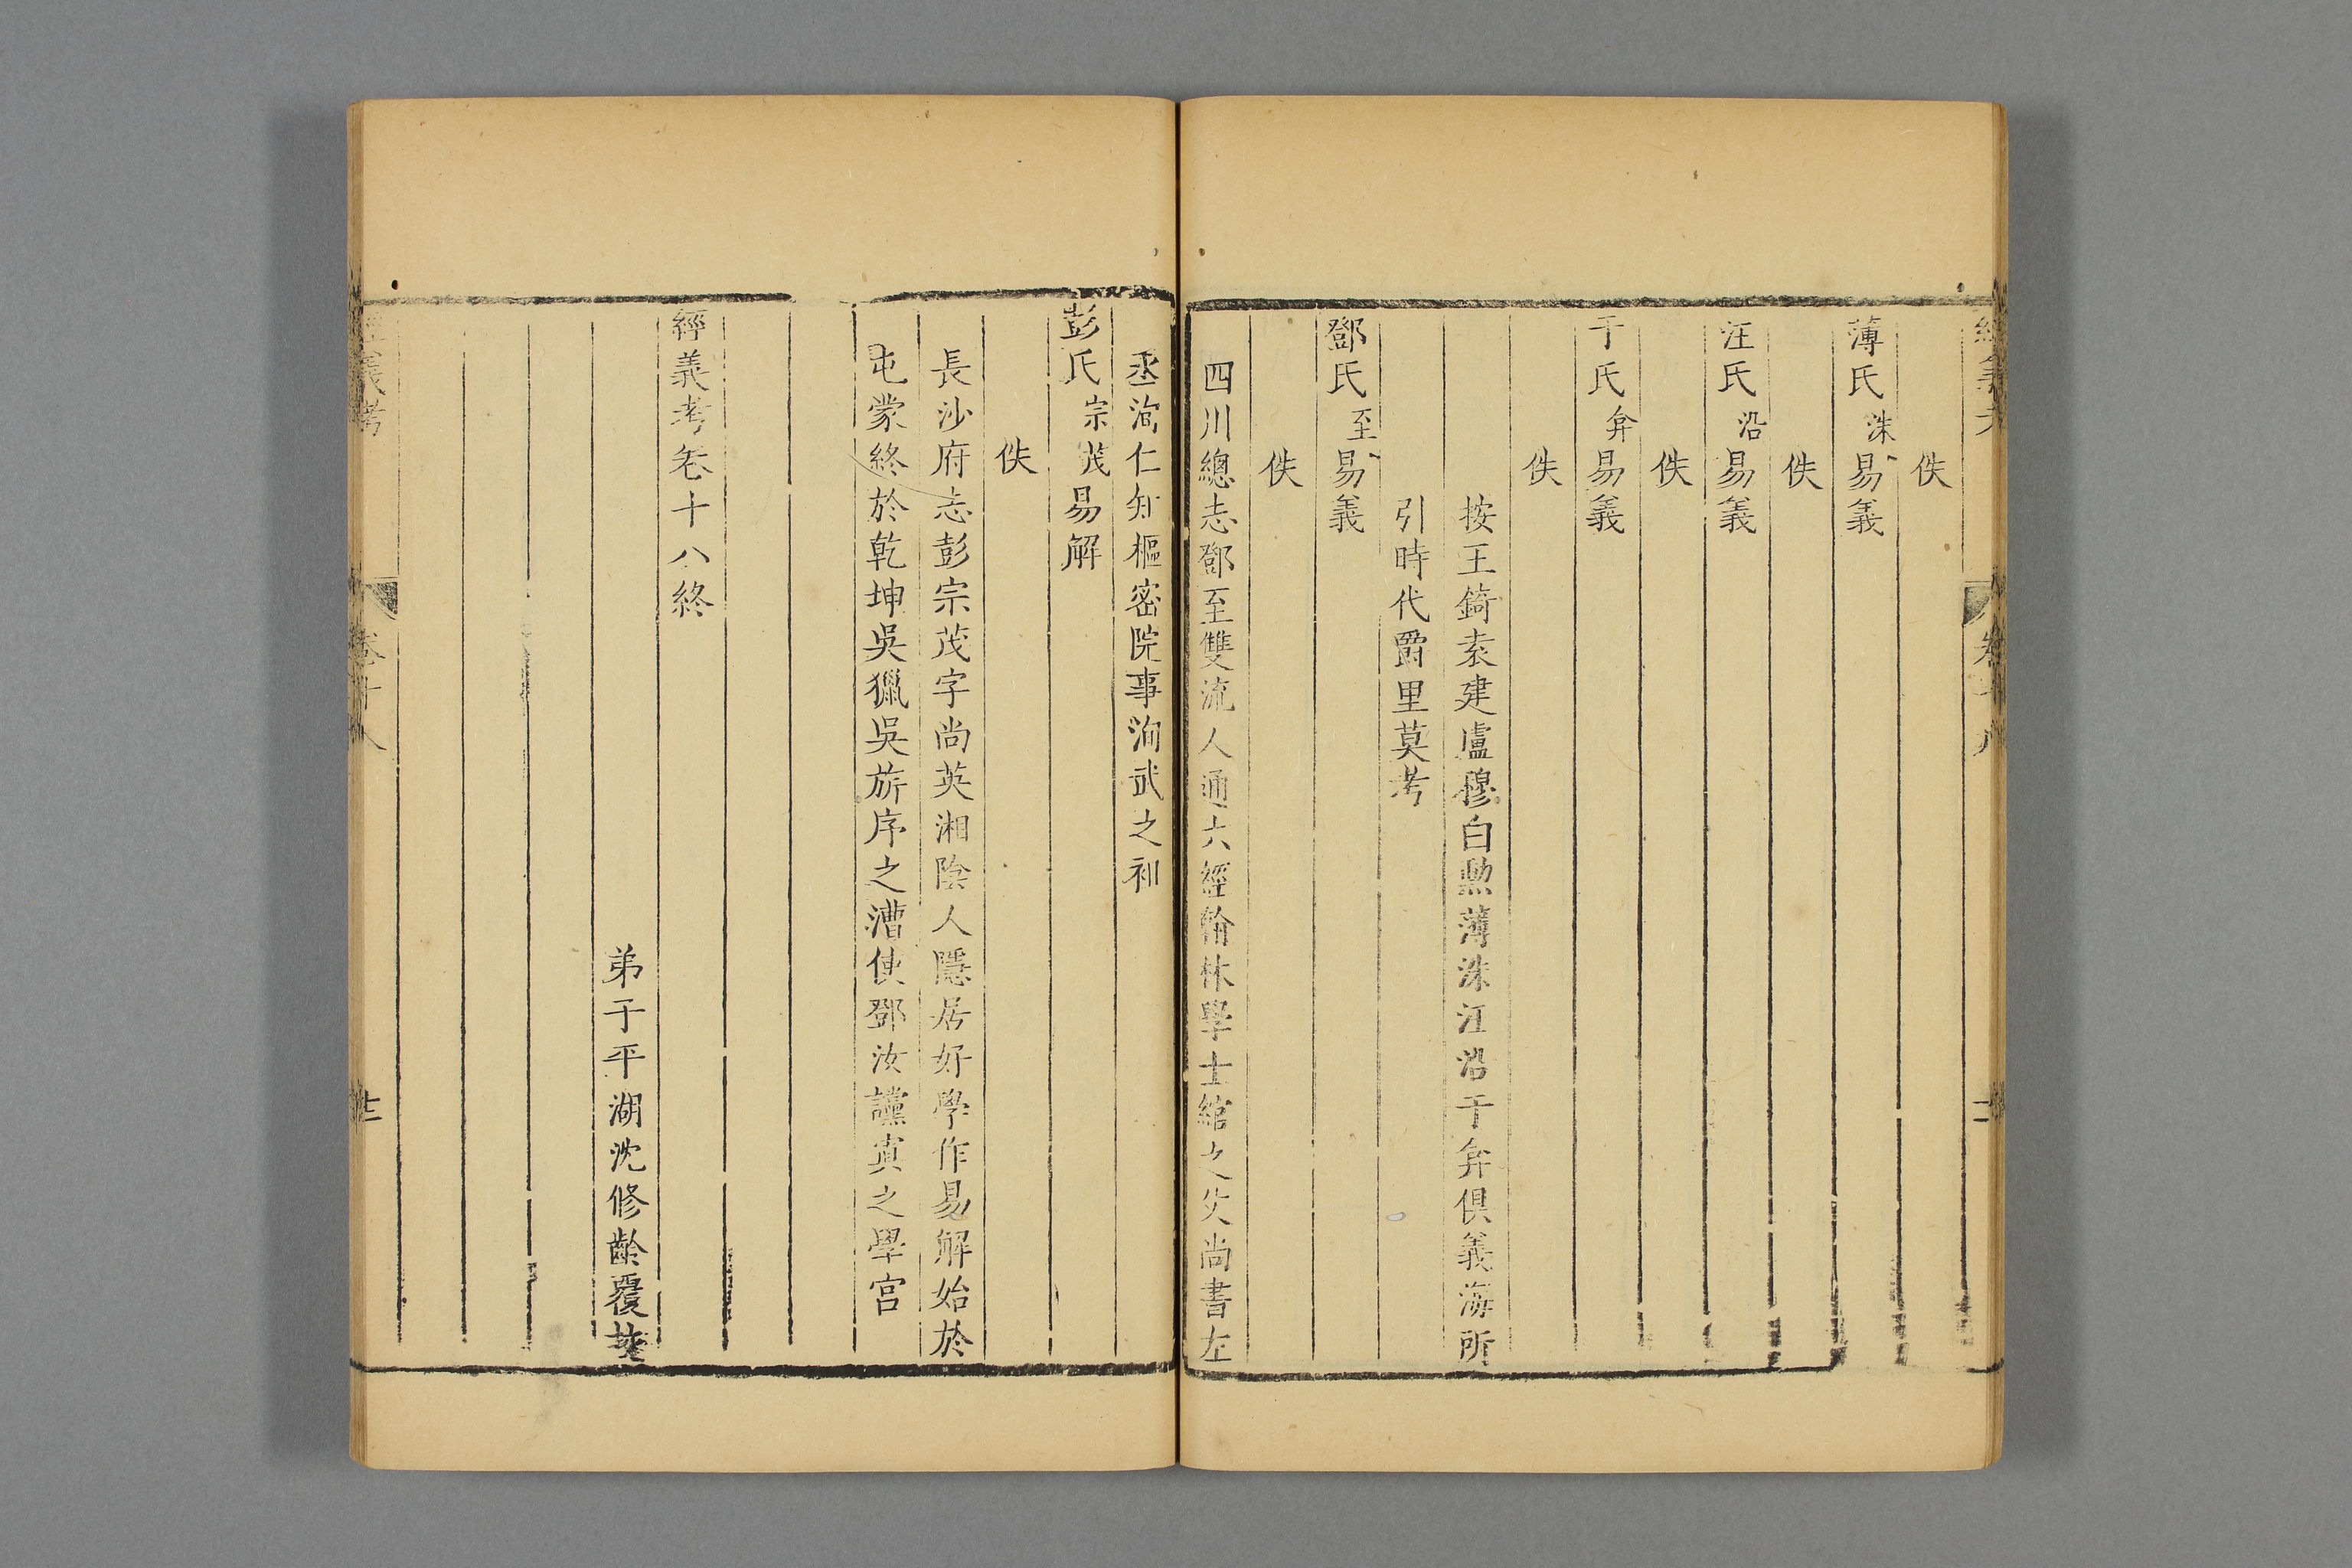 佚
薄氏洙易義
佚
汪氏沿易義
佚
于氏弇易義
佚
按王錡袁建盧穆白勲薄洙汪沿于弇俱義海所
引時代爵里莫考
鄧氏至易義
佚
四川總志鄧至雙流人通六經翰林學士綰之父尚書左
丞洵仁知樞密院事洵武之祖
彭氏宗茂易解
佚
長沙府志彭宗茂字尚英湘陰人隱居好學作易解始於
屯蒙終於乾坤吳獵吳旂序之漕使鄧汝讜寘之學宮
經義考卷十八終
弟子平湖沈修齡覆挍
經義考
卷十八